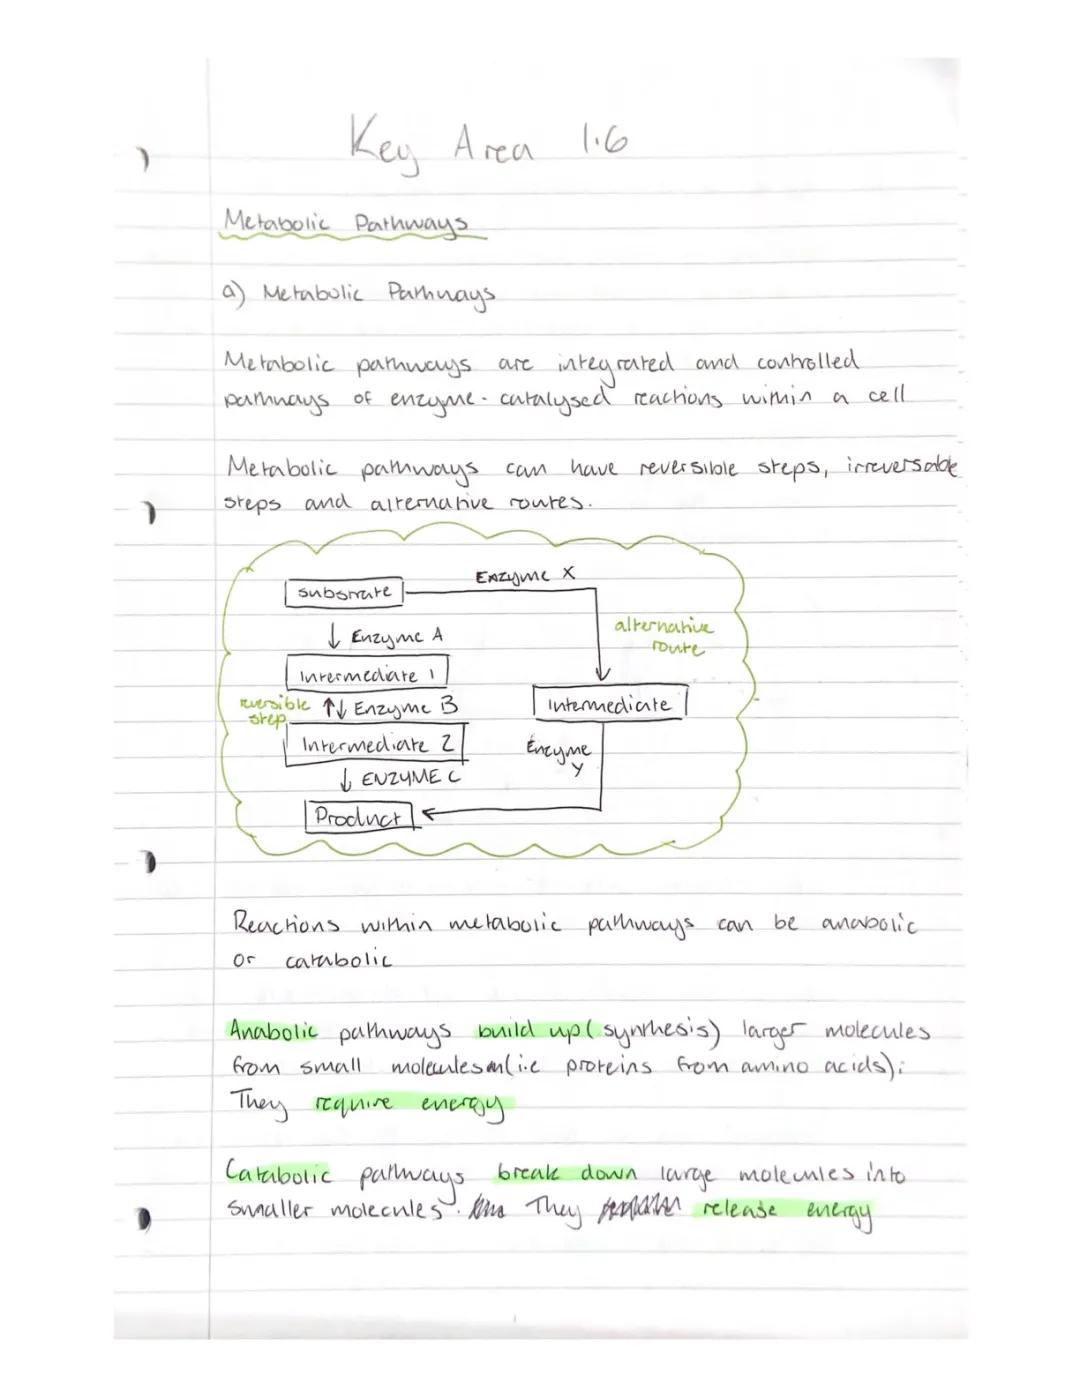 Key Area 1.6
Metabolic Pathways
a) Metabolic Pathways
Metabolic pathways are integrated and controlled
pathways of enzyme-catalysed reactions within a cell
Metabolic pathways can have reversible steps, irreversable
steps and alternative routes.
Enzyme X
substrate
alternative
route
↓ Enzyme A
Intermediate 1
reversible
step
↑↓ Enzyme B
Intermediate
Intermediate 2
Enzyme
Y
↓ ENZYME C
Product
Reactions within metabolic pathways can be anabolic
or catabolic
Anabolic pathways build up (synthesis) larger molecules
from small molecules (i.e proteins from amino acids).
They require energy
Catabolic pathways break down large molecules into
smaller molecules. They release energy